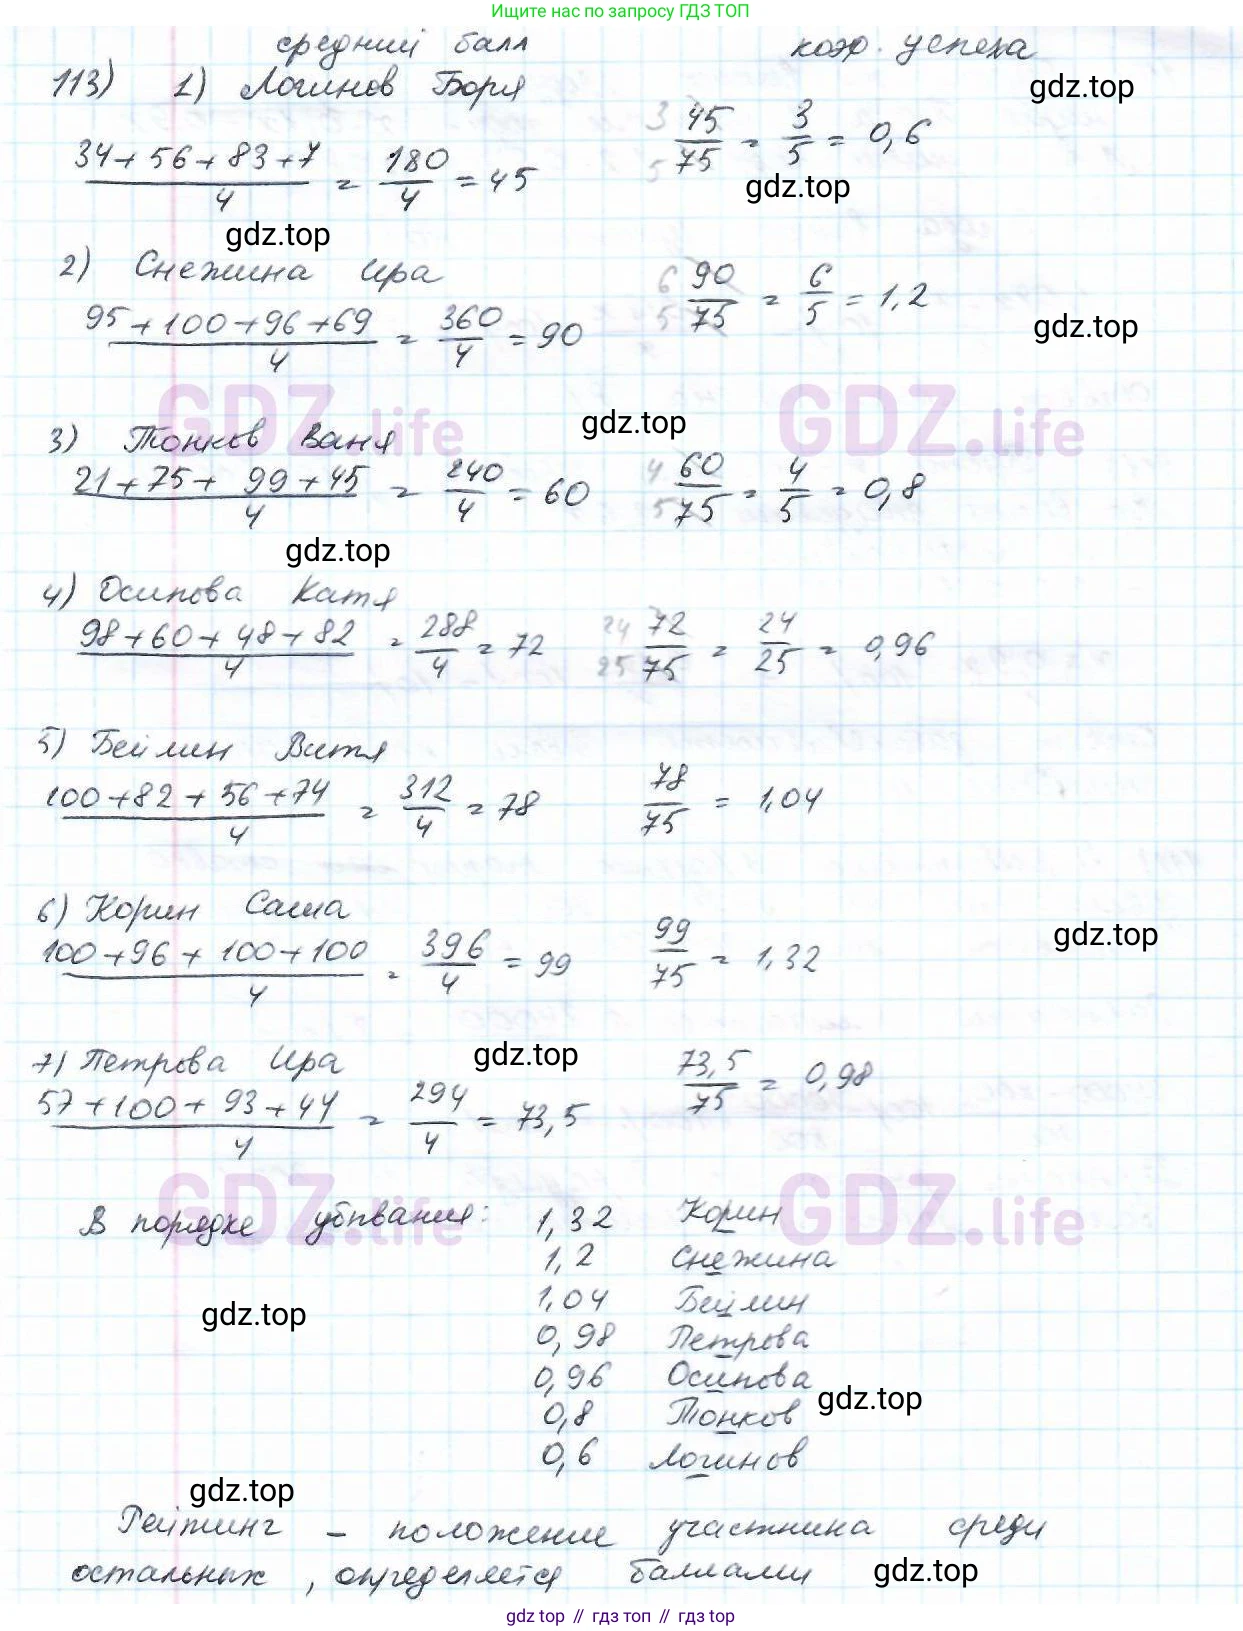 Ищите нас по запросу ГДЗ ТОП
средний балл коэф. успеха
113) 1) Логинов Боря gdz.top
(34+56+83+7)/4 = 180/4 = 45 45/75 = 3/5 = 0,6
gdz.top gdz.top
2) Снежина Ира
(95+100+96+69)/4 = 360/4 = 90 90/75 = 6/5 = 1,2
gdz.top
GDZ.life gdz.top GDZ.life
3) Тонков Ваня
(21+75+99+45)/4 = 240/4 = 60 60/75 = 4/5 = 0,8
gdz.top
4) Осипова Катя
(98+60+48+82)/4 = 288/4 = 72 72/75 = 24/25 = 0,96
5) Беймин Витя
(100+82+56+74)/4 = 312/4 = 78 78/75 = 1,04
6) Корин Саша
gdz.top
(100+96+100+100)/4 = 396/4 = 99 99/75 = 1,32
7) Петрова Ира gdz.top
(57+100+93+44)/4 = 294/4 = 73,5 73,5/75 = 0,98
GDZ.life GDZ.life
В порядке убывания: 1,32 Корин
1,2 Снежина
1,04 Беймин
gdz.top
0,98 Петрова
0,96 Осипова
gdz.top
0,8 Тонков
0,6 Логинов
gdz.top
Рейтинг – положение участника среди
остальных, определяется баллами gdz.top
gdz top // гдз топ // гдз top